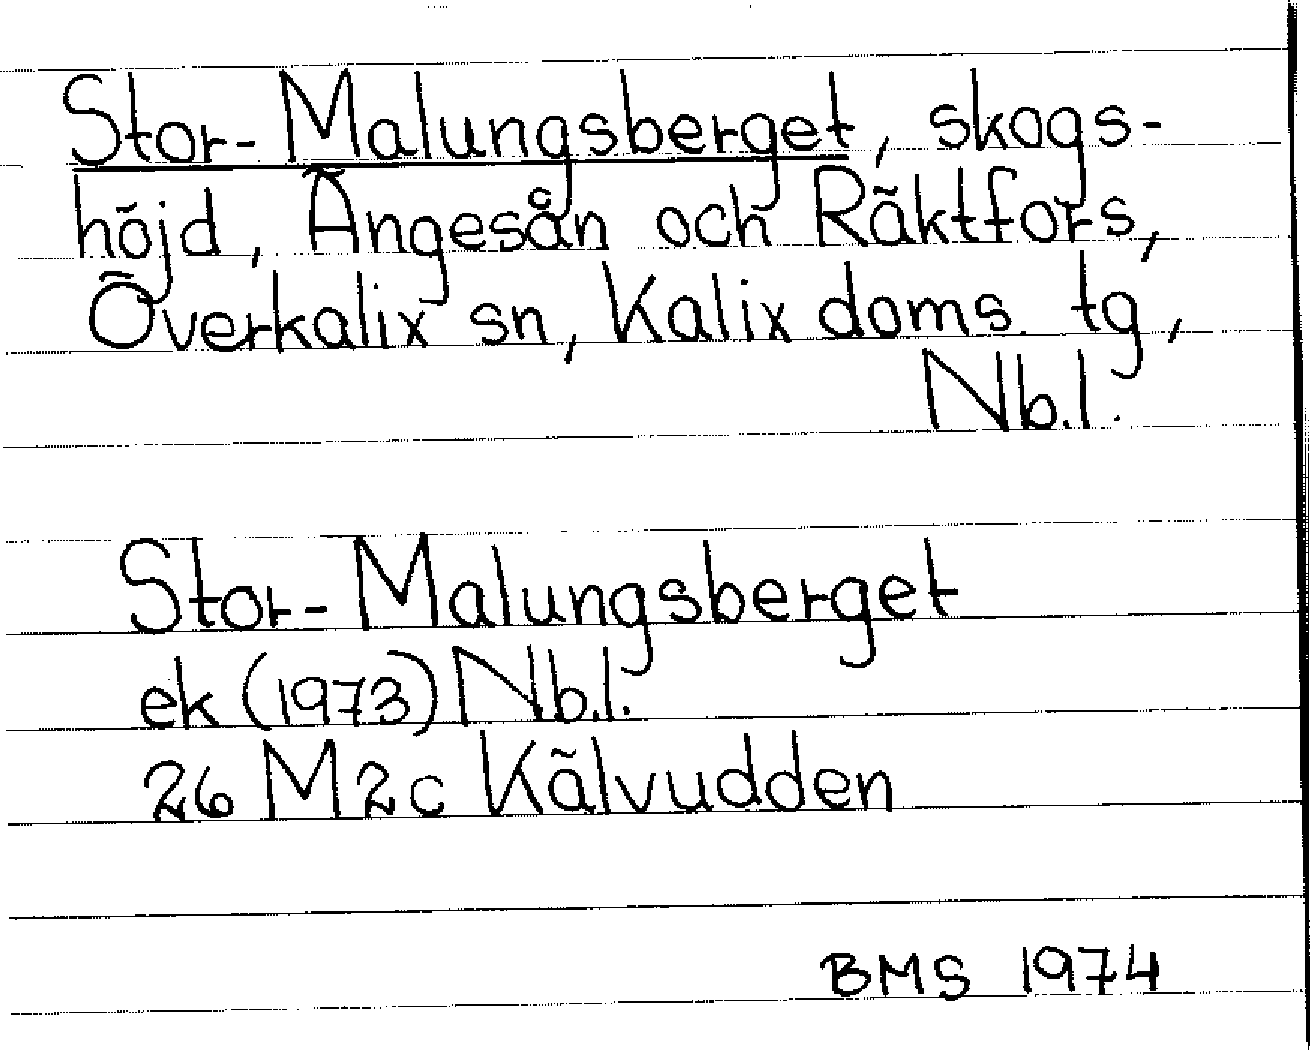 Stor-Malungsberget, skogs-
höjd, Ängesån och Räktfors,
Överkalix sn, Kalix doms. tg,
Nb.l.
Stor-Malungsberget
ek (1973) Nb.l.
26 M 2c Kälvudden
BMS 1974